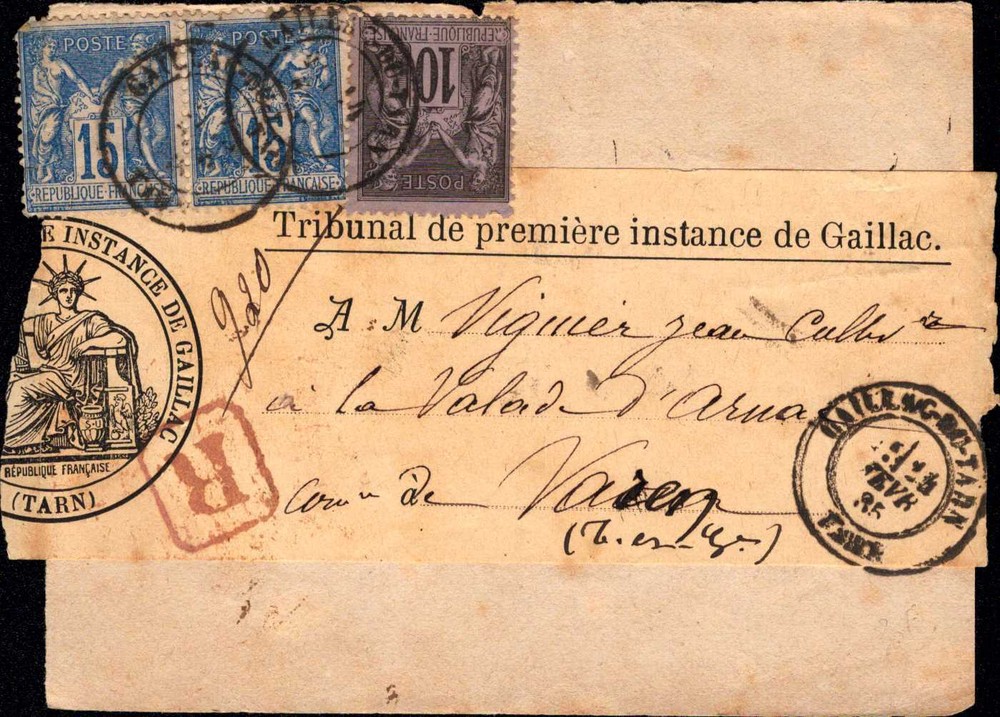 POSTE
15
RÉPUBLIQUE FRANÇAISE
POSTE
15
RÉPUBLIQUE FRANÇAISE
POSTE
10
RÉPUBLIQUE FRANÇAISE
Tribunal de première instance de Gaillac.
E INSTANCE DE GAILLAC
RÉPUBLIQUE FRANÇAISE
(TARN)
920
A M Viguier Jean
à la Valade d'Arna
comne de Varen
(T.-et-Gne)
R
GAILLAC-DU-TARN
FEVR
85